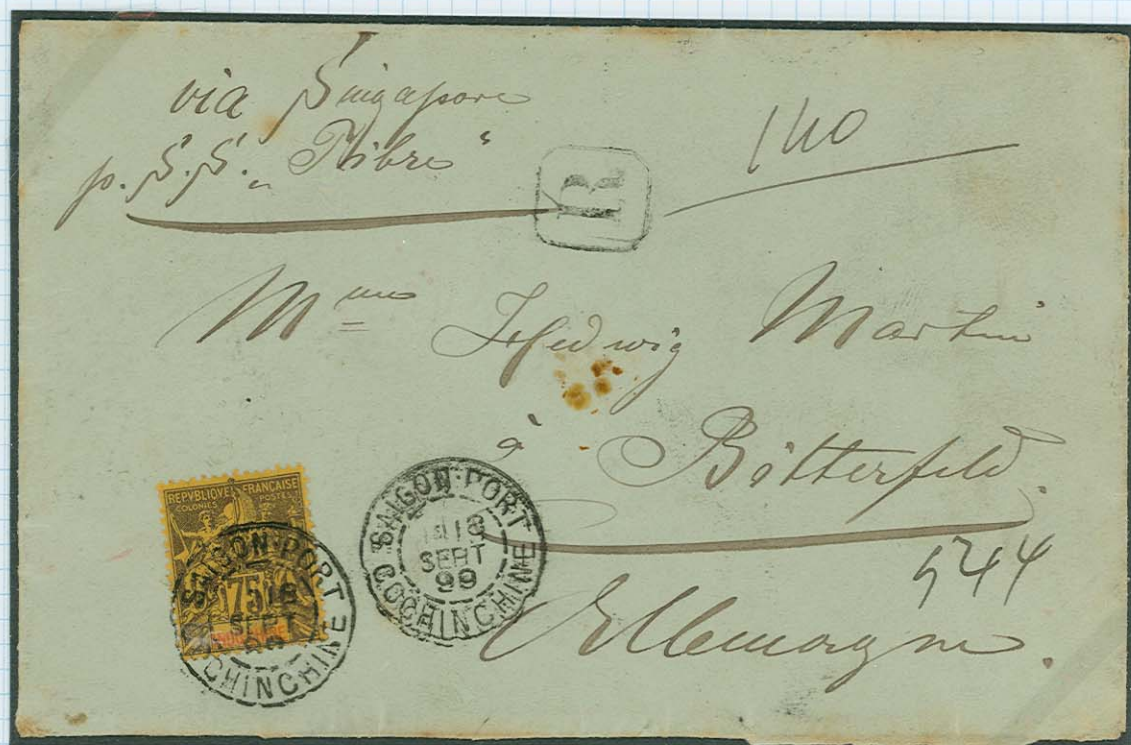 via Singapore
p. S.S. „Tibre“
R
140
Mme Hedwig Martin
à Bitterfeld.
5744
Allemagne.
REPVBLIQVE FRANÇAISE
COLONIES POSTES
75
SAIGON-PORT
18
SEPT
COCHINCHINE
SAIGON-PORT
18
SEPT
99
COCHINCHINE